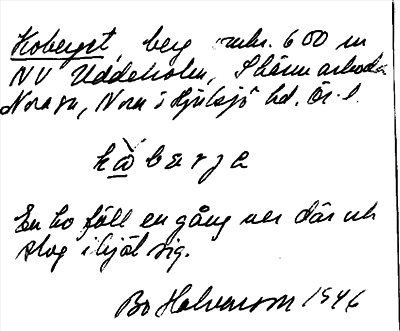 Koberget, berg omkr. 600 m
NV Uddeholm, Skärmarboda
Norasn, Nora o Hjulsjö hd. Ör. l.
kòbærjə
En ko föll en gång ner där och
slog ihjäl sig.
Bo Halvarsson 1946